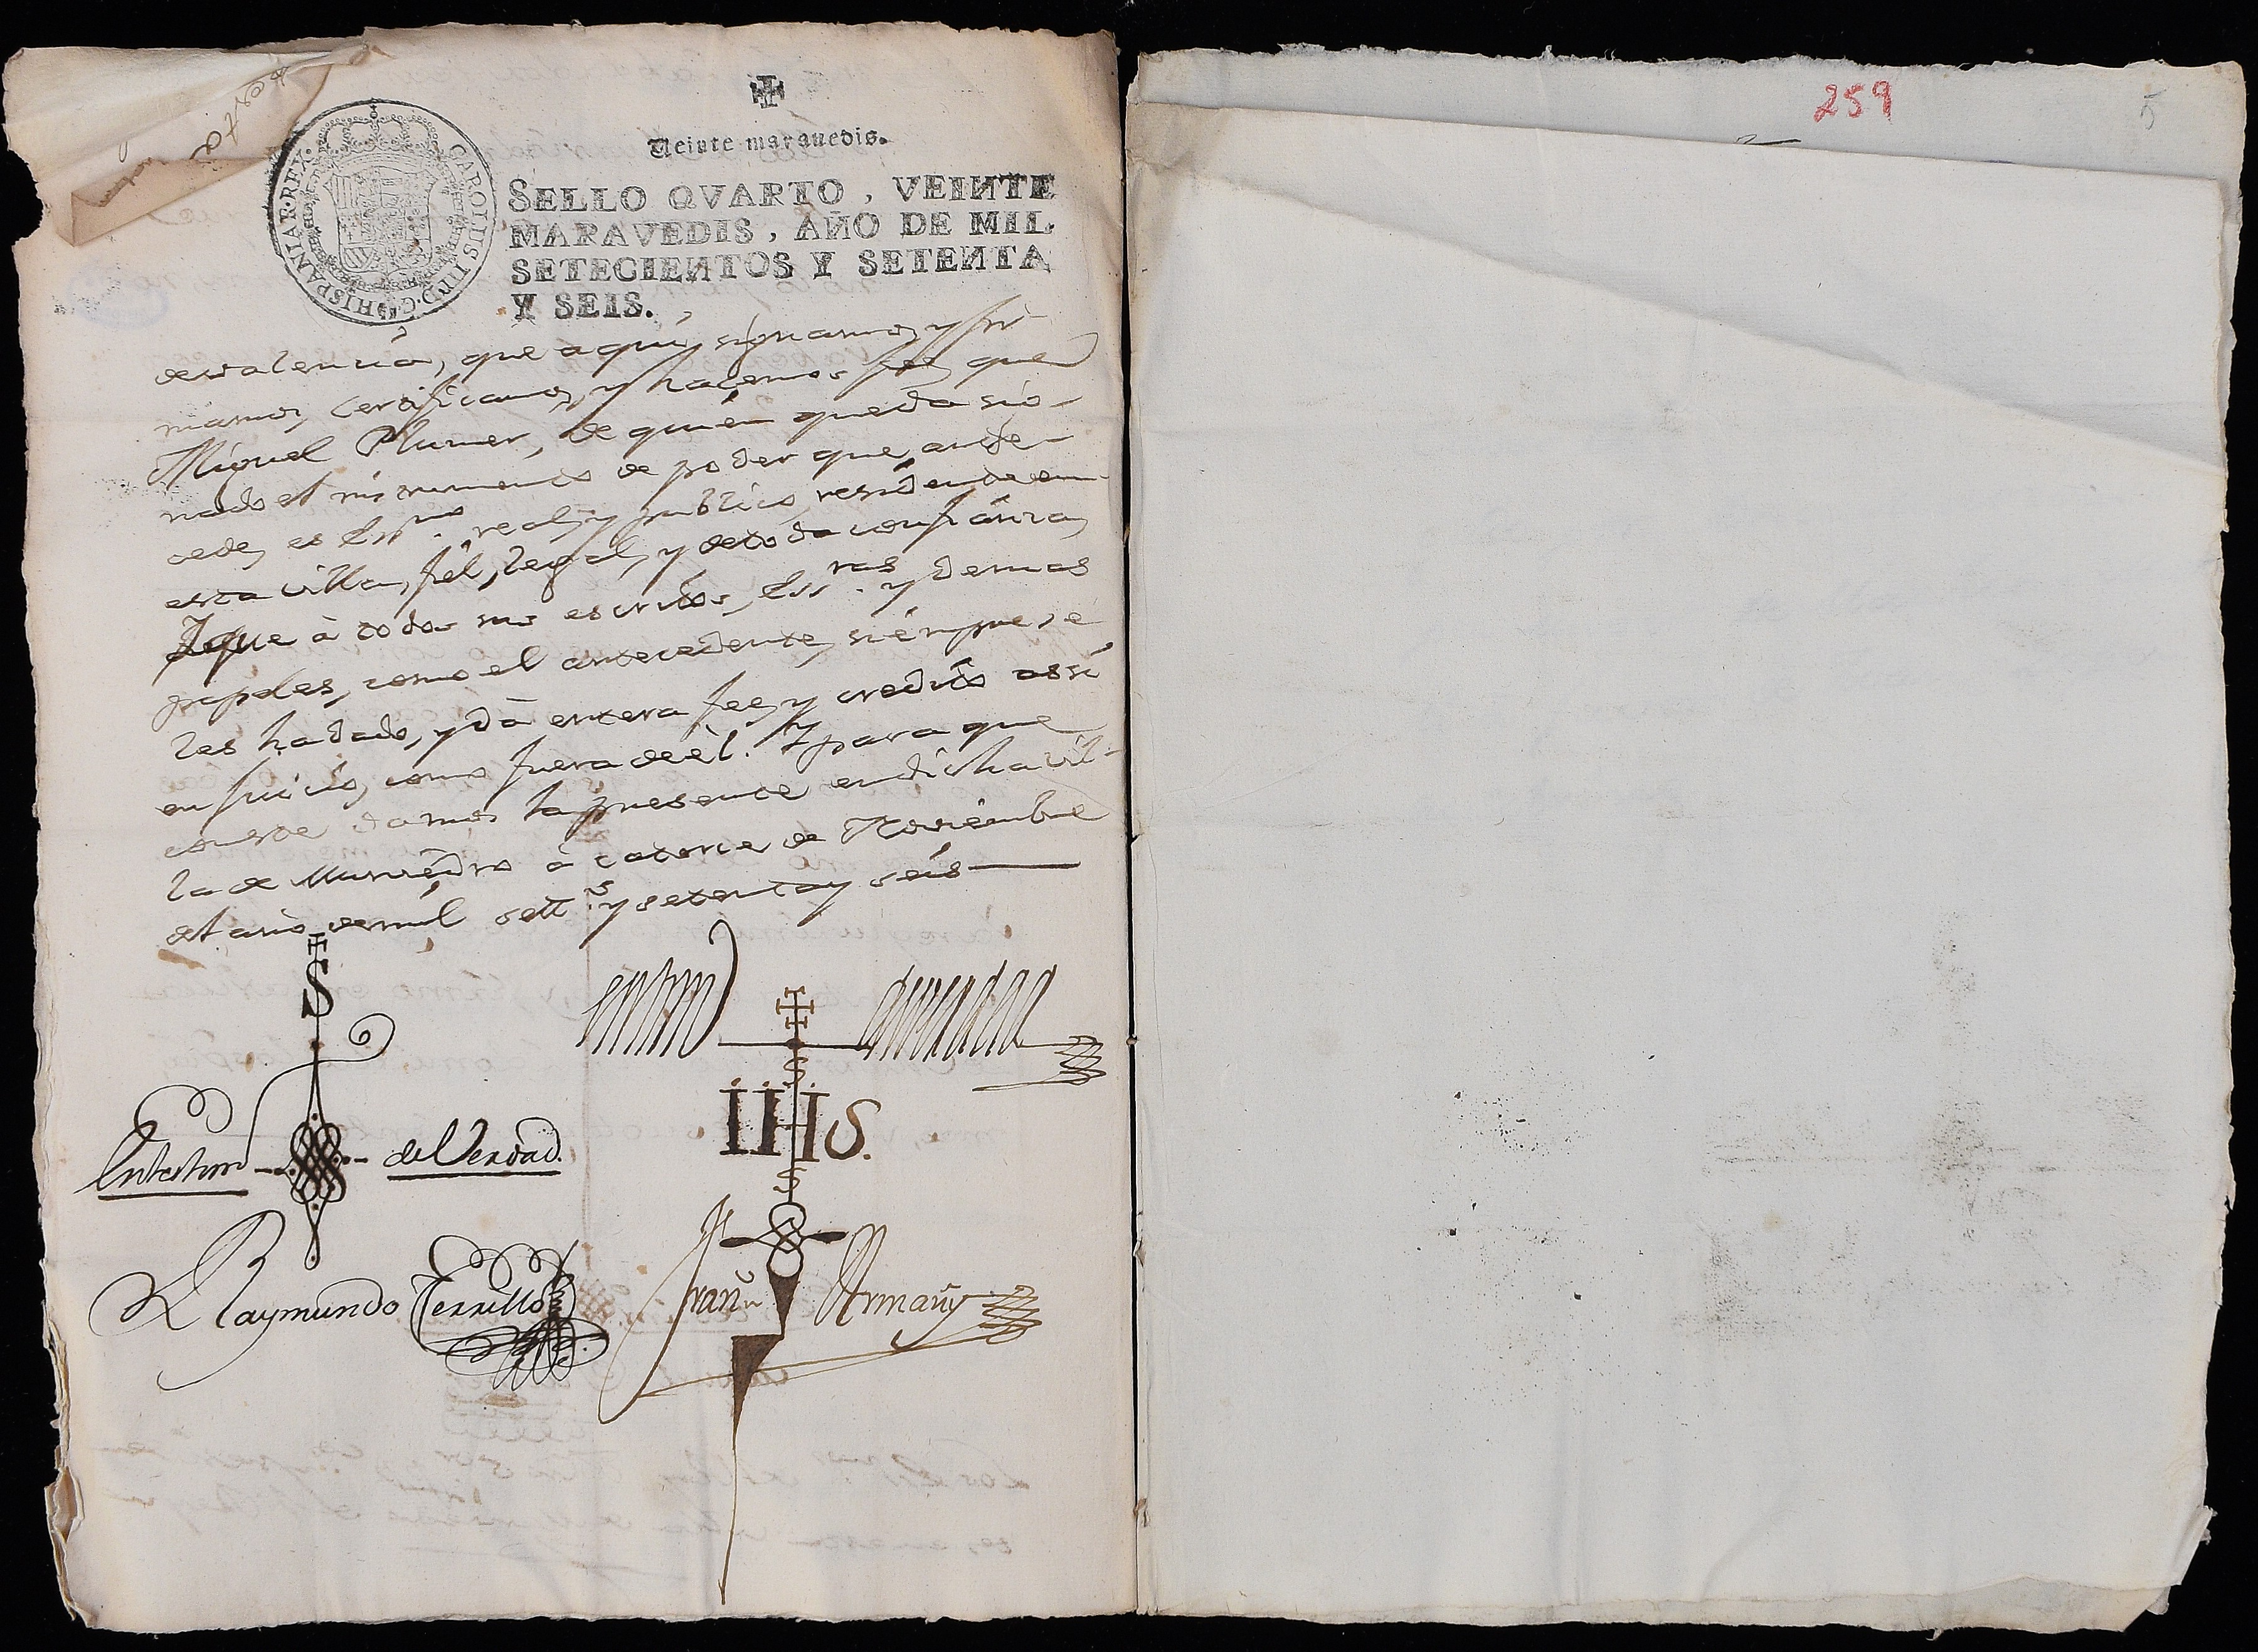 259
5
Veinte maravedis.
CAROLUS III D. G. HISPANIAR. REX.
SELLO QVARTO, VEINTE
MARAVEDIS, AÑO DE MIL
SETECIENTOS Y SETENTA
Y SEIS.
de valencia, que aqui signamos, y fir-
mamos, Certificamos, y hacemos fee que
Miguel Plumer, de quien queda sig-
nado el instrumento de poder que ante-
cede, es Essno. real, y publico, residente en
esta villa, fiel, legal, y de toda confianza,
Y que à todos sus escritos, Essras. y demas
papeles, como el antecedente, siempre se
les ha dado, y dà entera fee, y credito assi
en juicio, como fuera de èl. Y para que
conste damos la presente en dicha vil-
la de Murviedro à catorce de Noviembre
del año de mil setts. y setenta y seis
S
en testim de verdad
S
IHS.
S
En testim de Verdad.
Raymundo Terrillo
Franco Armany